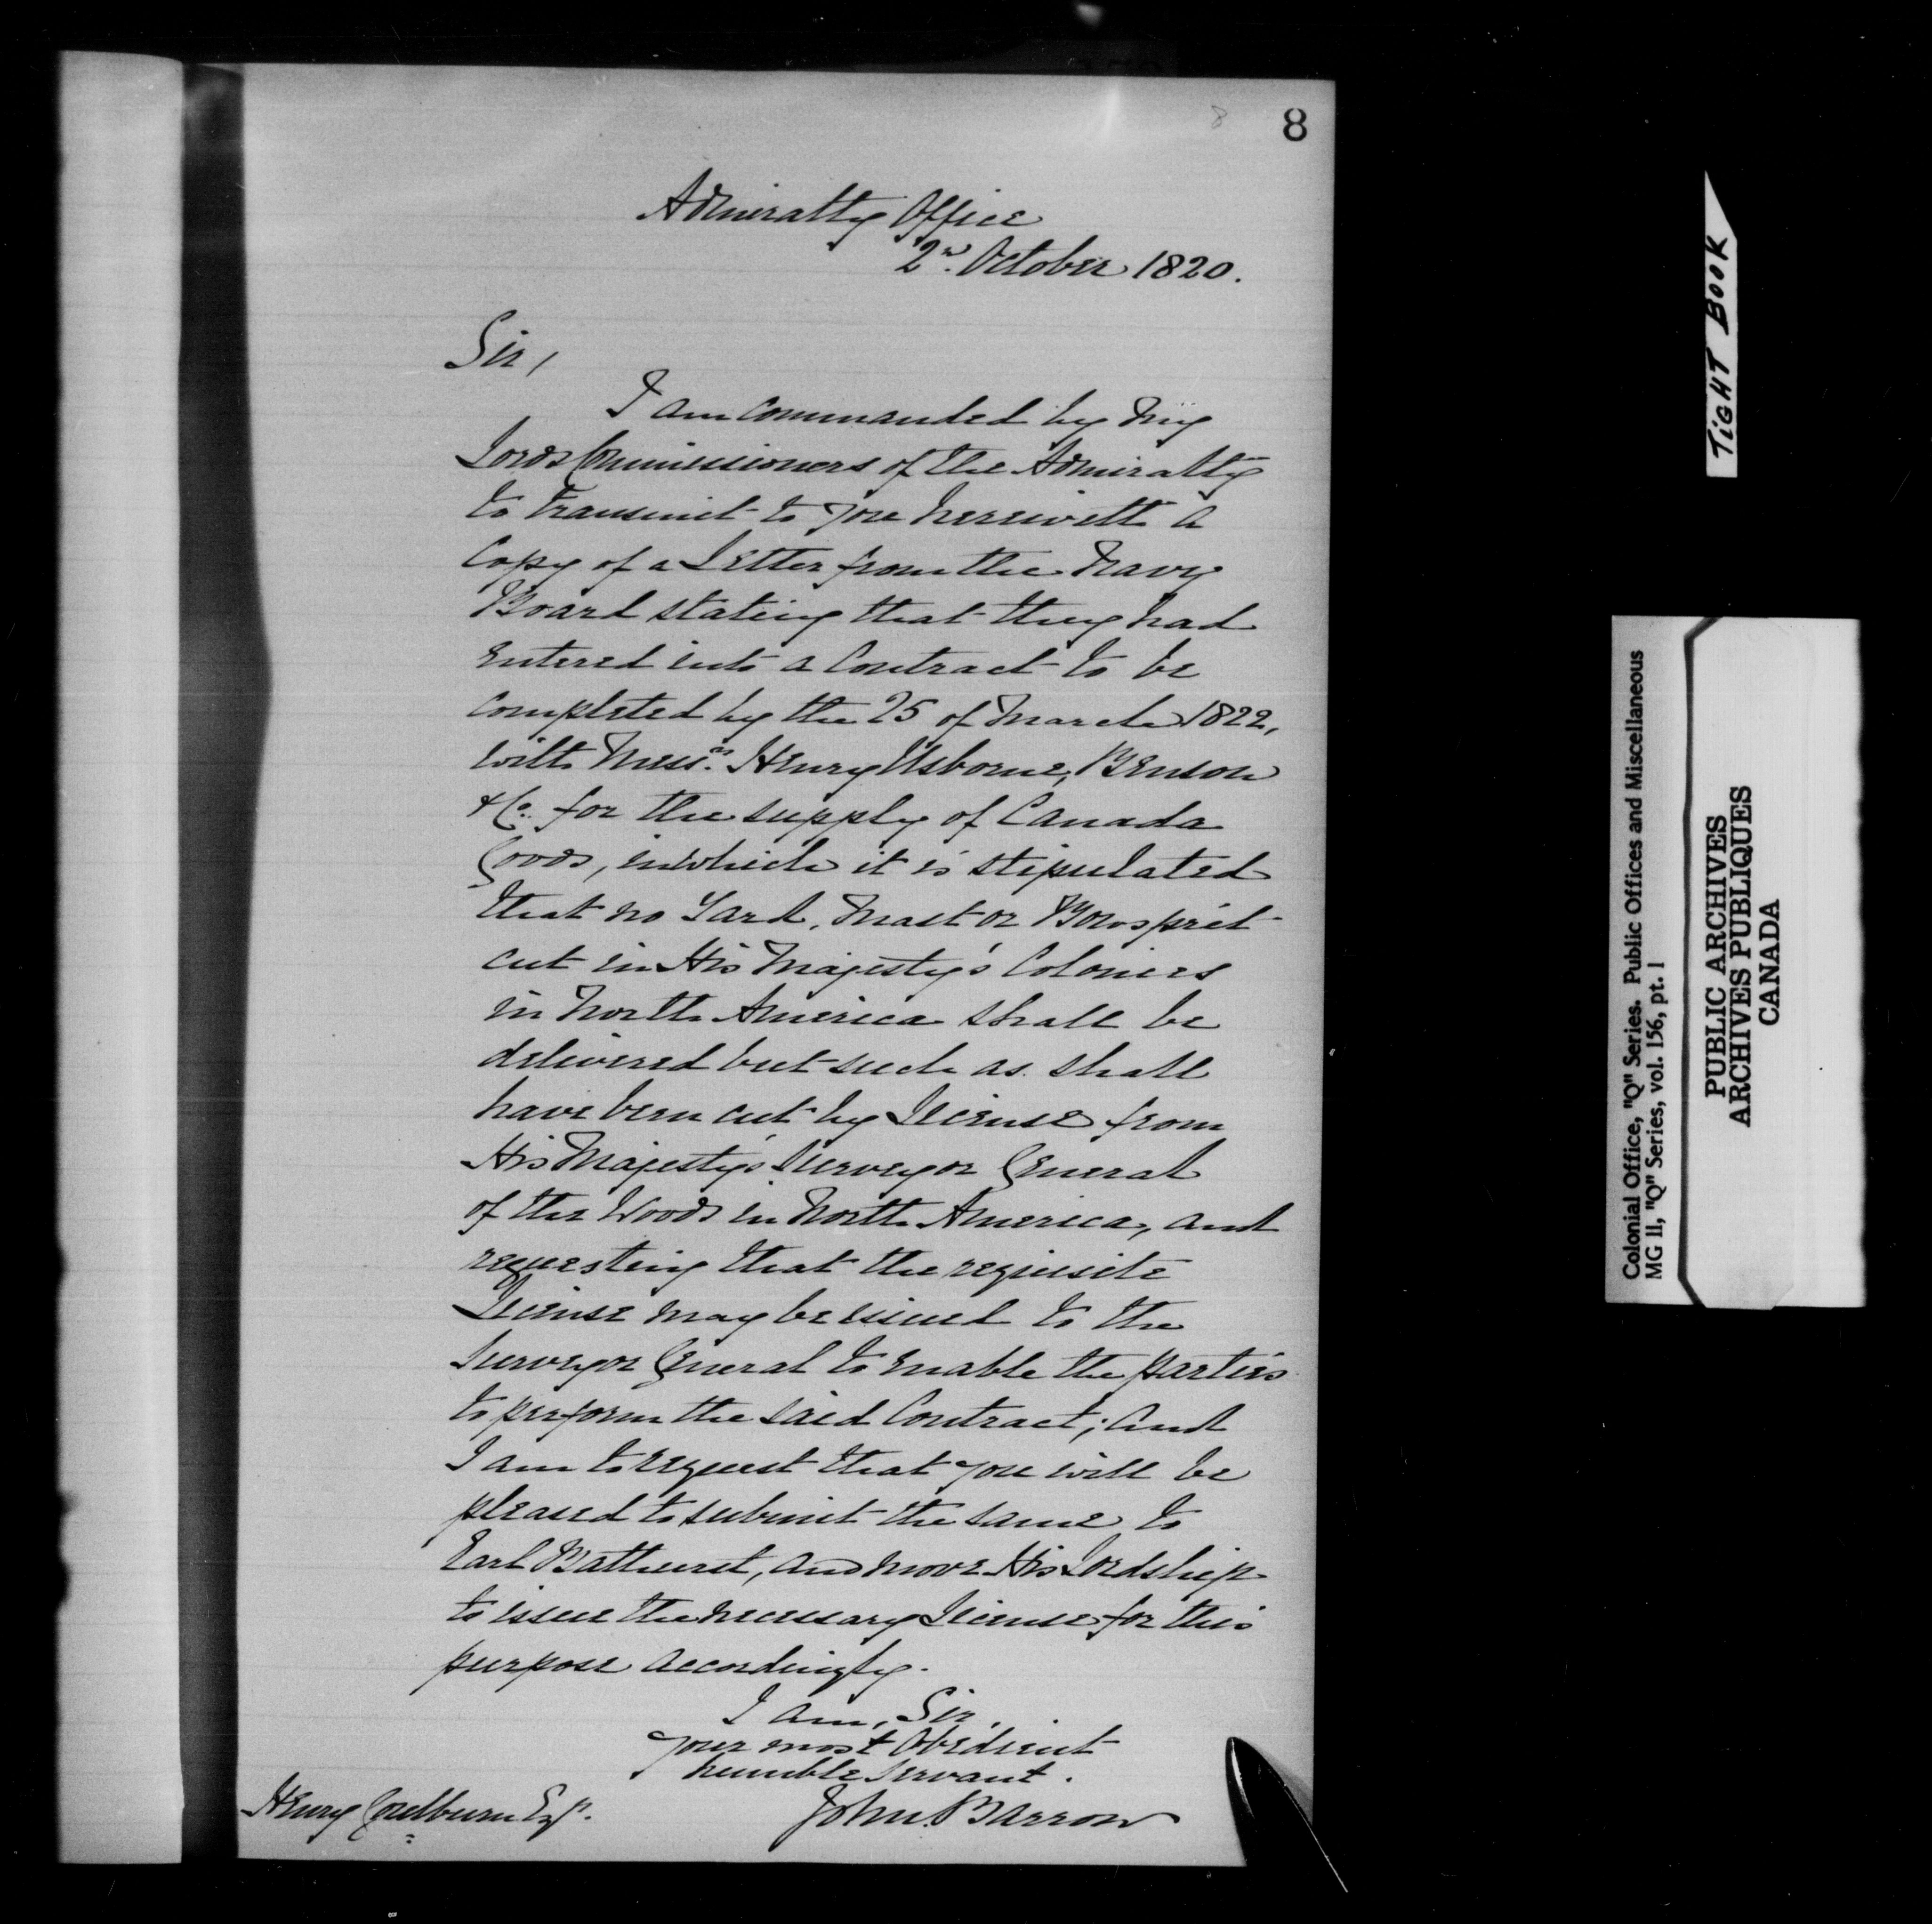 8
8
Admiralty Office
2nd. October 1820.
Sir,
I am commanded by My
Lords Commissioners of the Admiralty
to transmit to you herewith a
Copy of a Letter from the Navy
Board stating that they had
entered into a Contract to be
completed by the 25 of March 1822,
with Messrs. Henry Usborne, Benson
& Co. for the supply of Canada
Goods, in which it is stipulated
that no Yard, Mast or Bowsprit
cut in His Majesty's Colonies
in North America shall be
delivered but such as shall
have been cut by License from
His Majesty's Surveyor General
of the Woods in North America, and
requesting that the requisite
License may be issued to the
Surveyor General to enable the parties
to perform the said Contract; and
I am to request that you will be
pleased to submit the same to
Earl Bathurst, and move His Lordship
to issue the necessary License for this
purpose accordingly.
I am, Sir,
your most Obedient
humble servant.
John Barrow
Henry Goulburn Esqr.
TIGHT BOOK
Colonial Office, "Q" Series. Public Offices and Miscellaneous
MG 11, "Q" Series, vol. 156, pt. 1
PUBLIC ARCHIVES
ARCHIVES PUBLIQUES
CANADA